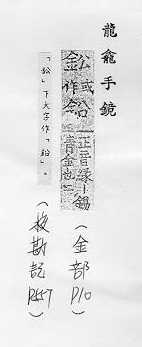 龍龕手鏡
鈆或鉛 正音緣丨錫
鈆作鉛 青金也二
（金部 P10）
「鈆」下大字作「鉛」。
（校勘記 P457）